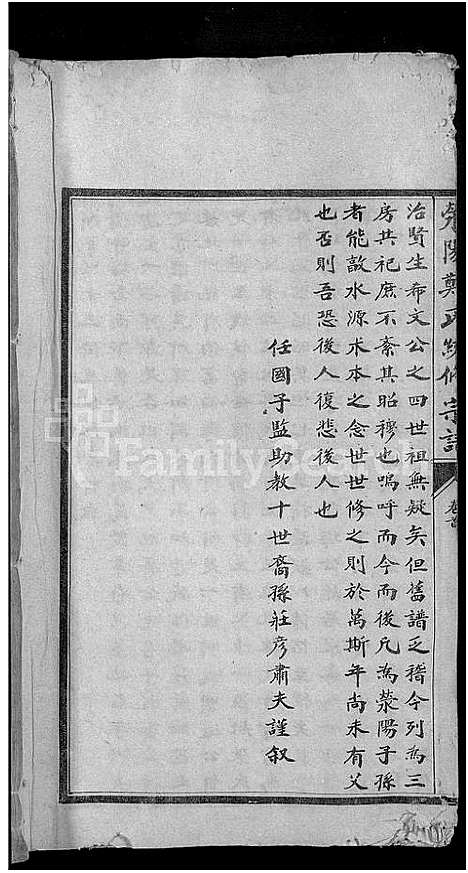 滎陽鄭氏統修宗譜
卷首
治賢生希文公之四世祖無疑矣但舊譜乏稽今列為三
房共祀庶不紊其昭穆也嗚呼而今而後凡為滎陽子孫
者能敦水源木本之念世世修之則於萬斯年尚未有父
也否則吾恐後人復悲後人也
任國子監助教十世裔孫莊彥肅夫謹叙
FamilySearch